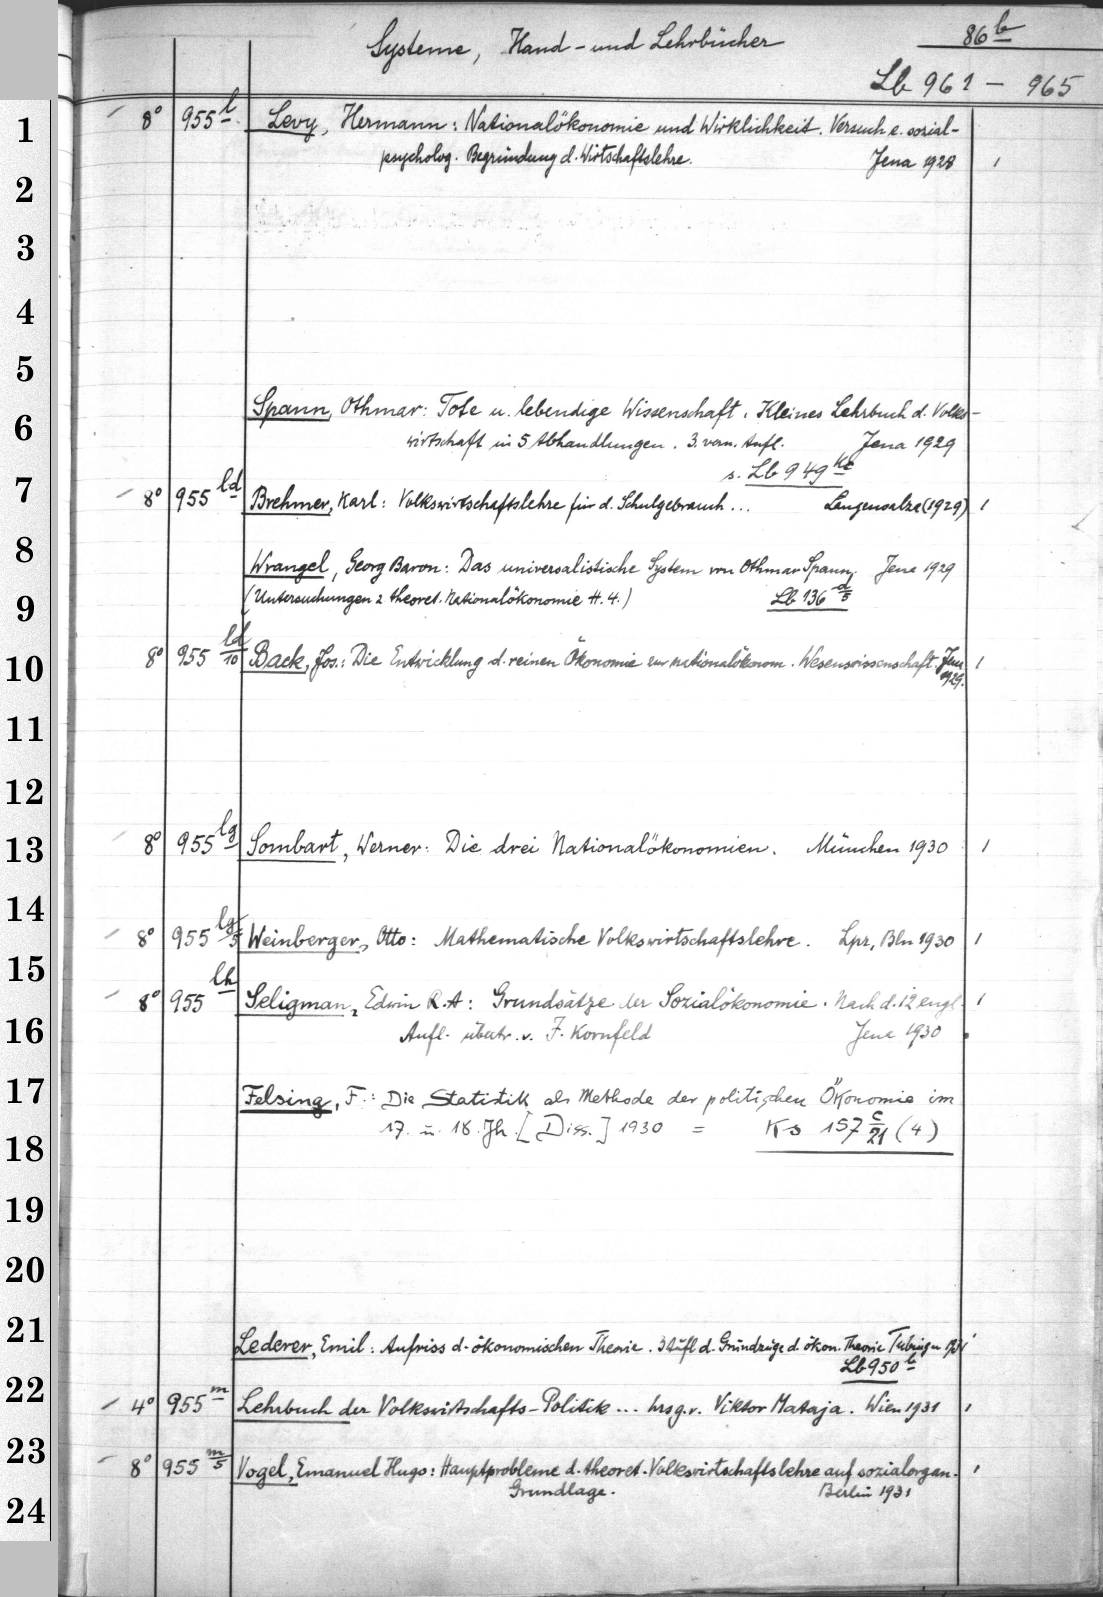 Systeme, Hand-und Lehrbücher 86 b
Lb 961 - 965
8° 955 l Levy, Hermann: Nationalökonomie und Wirklichkeit. Versuch e. sozial-
psycholog. Begründung d. Wirtschaftslehre. Jena 1928 1
Spann, Othmar: Tote u. lebendige Wissenschaft. Kleines Lehrbuch d. Volks-
wirtschaft in 5 Abhandlungen. 3. verm. Aufl. Jena 1929
s. Lb 949 kc
8° 955 ld Brehmer, Karl: Volkswirtschaftslehre für d. Schulgebrauch ... Langensalza (1929) 1
Wrangel, Georg Baron: Das universalistische System von Othmar Spann. Jena 1929
(Untersuchungen z theoret. Nationalökonomie H. 4.) Lb 136 d/5
8° 955 ld/10 Back, Jos.: Die Entwicklung d. reinen Ökonomie zur nationalökonom. Wesenswissenschaft. Jena 1
1929.
8° 955 lg Sombart, Werner: Die drei Nationalökonomien. München 1930 1
8° 955 lg/5 Weinberger, Otto: Mathematische Volkswirtschaftslehre. Lpz, Bln 1930 1
8° 955 lh Seligman, Edwin R.A: Grundsätze der Sozialökonomie. Nach d. 12 engl 1
Aufl. übertr. v. F. Kornfeld Jena 1930
Felsing, F.: Die Statistik als Methode der politischen Ökonomie im
17. u. 18. Jh. [Diss.] 1930 = Ks 157 c/21 (4)
Lederer, Emil: Aufriss d. ökonomischen Theorie. 3 Aufl d. Grundzüge d. ökon. Theorie Tübingen 1931
Lb 950 b
4° 955 m Lehrbuch der Volkswirtschafts-Politik ... hrsg. v. Viktor Mataja. Wien 1931 1
8° 955 m/5 Vogel, Emanuel Hugo: Hauptprobleme d. theoret. Volkswirtschaftslehre auf sozialorgan. 1
Grundlage. Berlin 1931
1
2
3
4
5
6
7
8
9
10
11
12
13
14
15
16
17
18
19
20
21
22
23
24